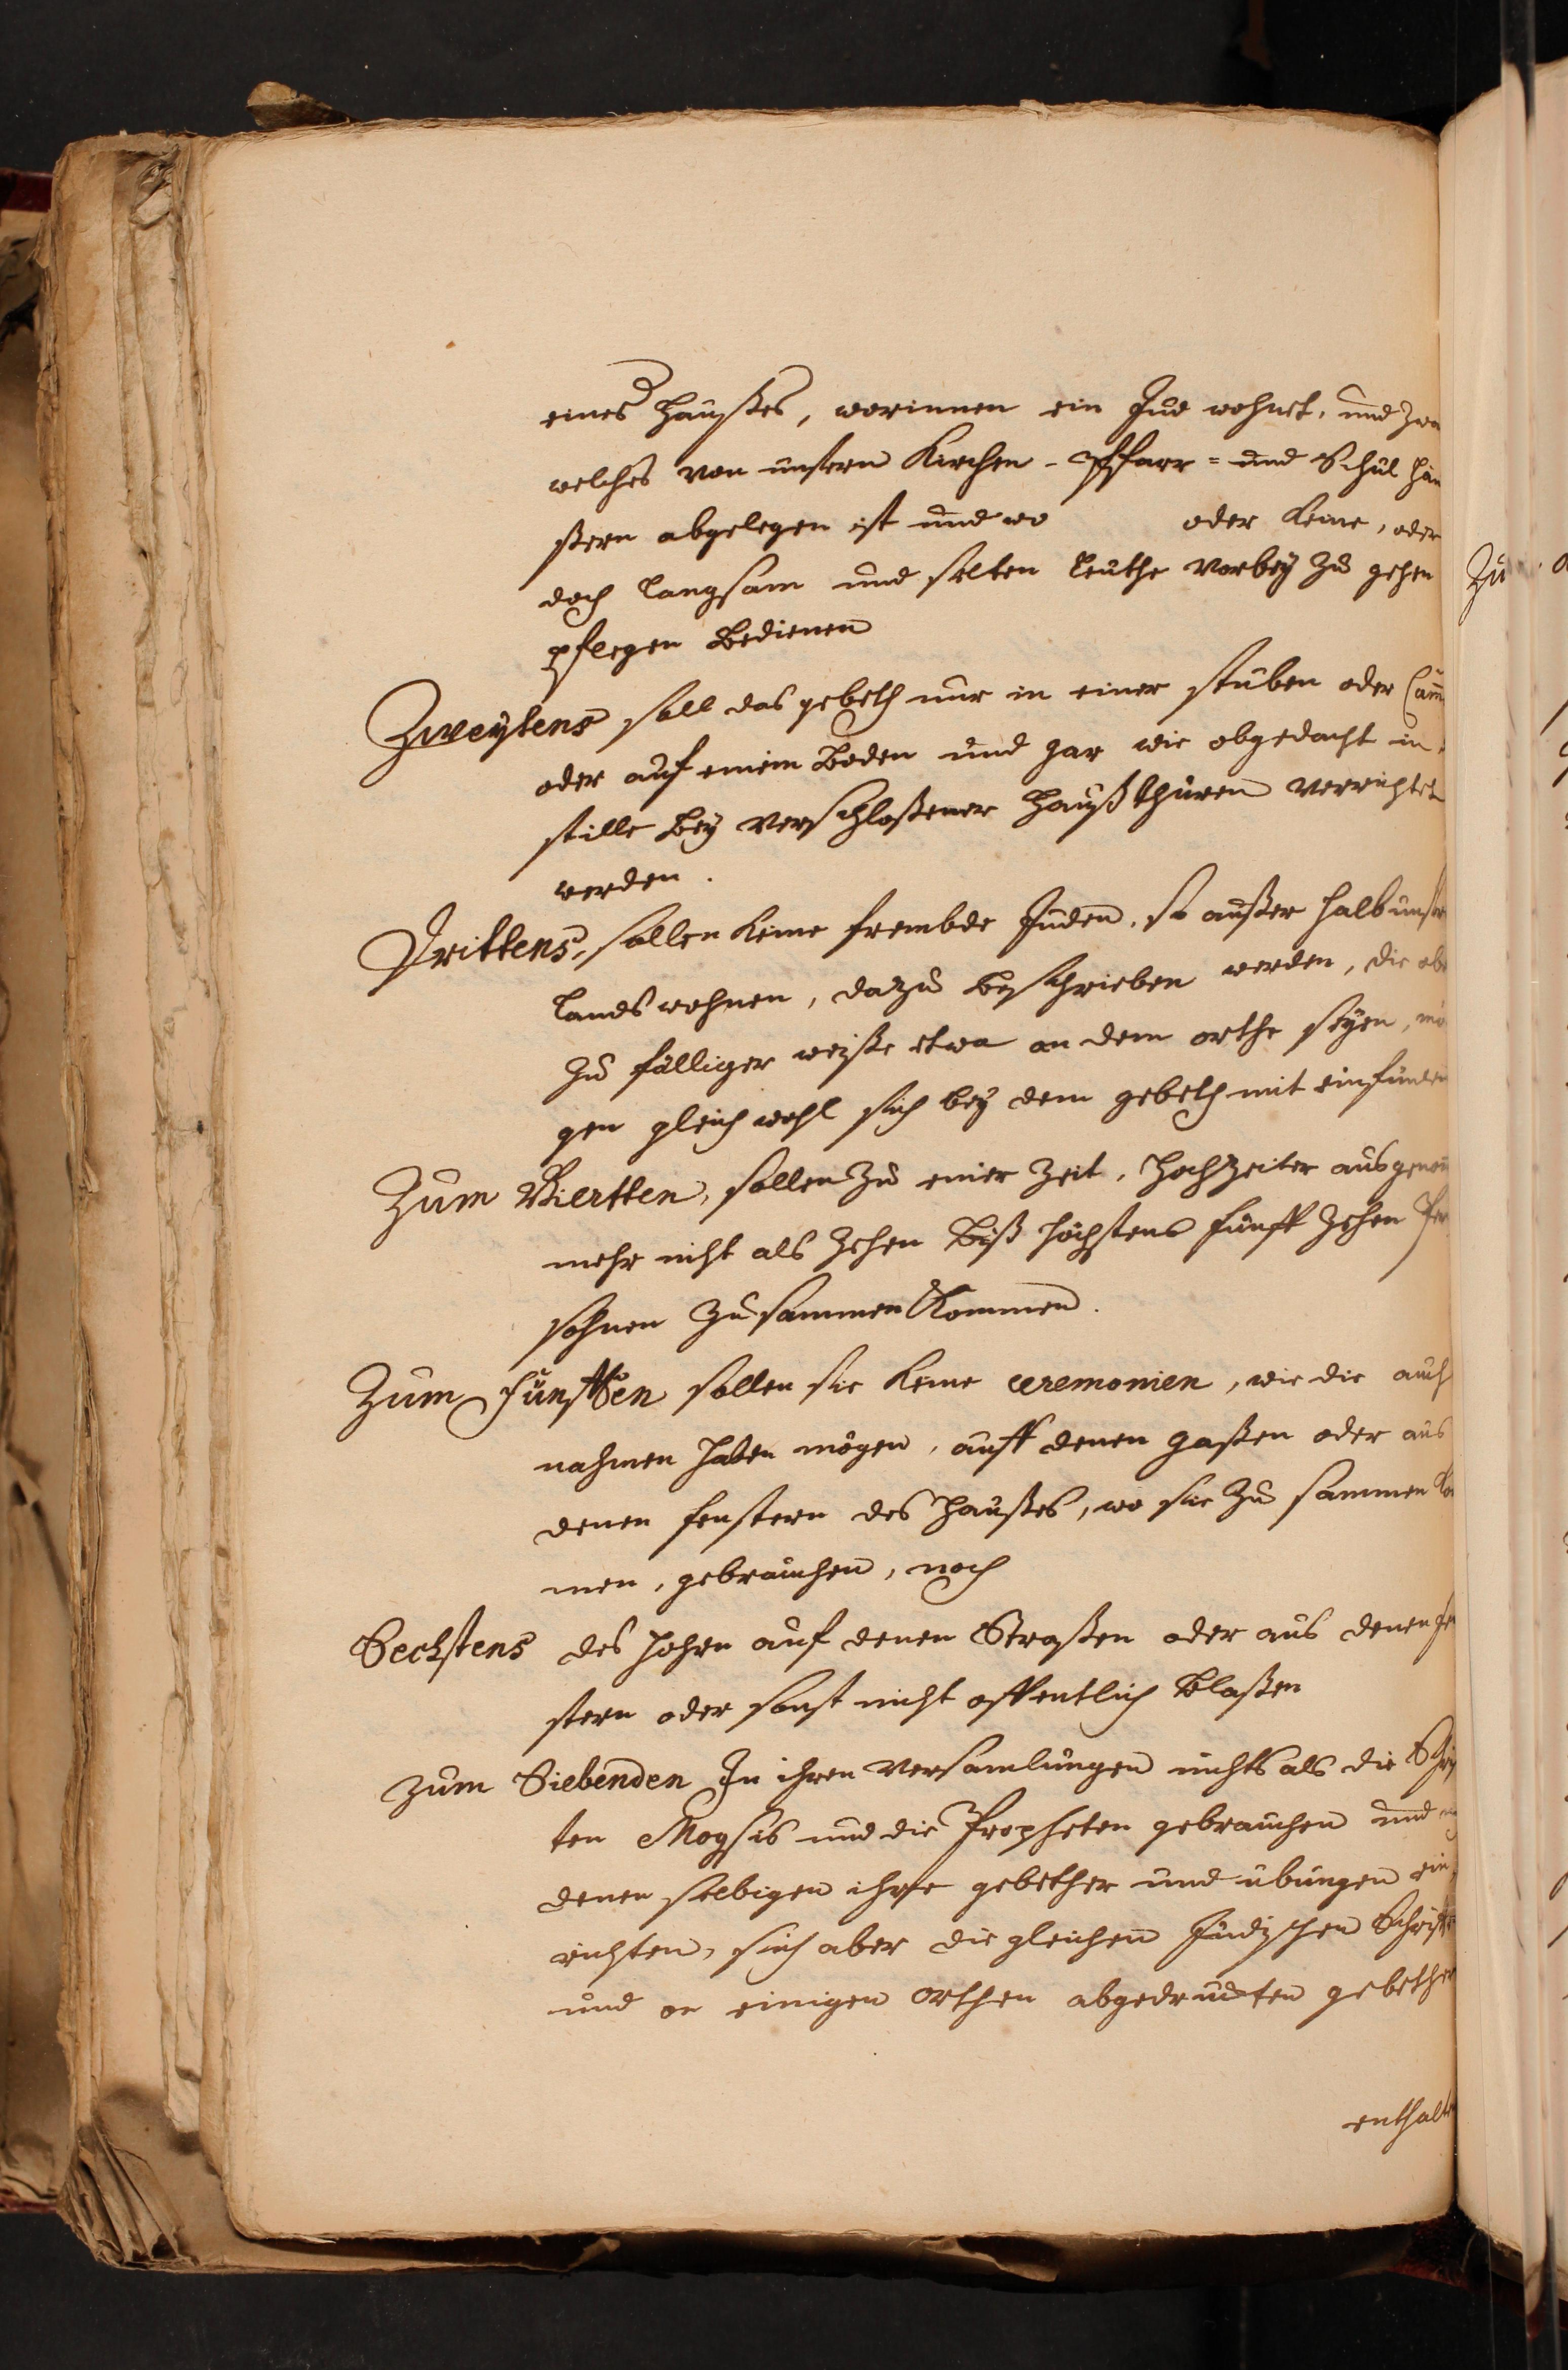 eines Haußes, worinnen ein Jud wohnet, und zwa
welches von unsern Kirchen - Pffarr = und Schul häu
ßern abgelegen ist und wo oder keine, oder
doch langsam und selten leuthe vorbey zu gehen
pflegen bedienen
Zweytens soll das gebeth nur in einer stuben oder Cam
oder auf einem Boden und gar wie obgedacht in
stille bey verschloßener Hauß thüren verrichtet
werden.
Drittens, sollen keine frembde Juden, so außer halb unser
lands wohnen, dazu beschrieben werden, die abe
zu fälliger weiße etwa an dem orthe seyen, mö
gen gleich wohl sich bey dem gebeth mit einfinden
Zum Viertten, sollen zu einer Zeit, Hochzeiter ausgenom
mehr nicht als zehen biß höchstens fünff zehen Per
sohnen zusammen kommen.
Zum fünfften sollen sie keine ceremonien, wie die auch
nahmen haben mögen, auff denen gaßen oder aus
denen fenstern des Haußes, wo sie zu sammen ko
men, gebrauchen, noch
Sechstens des Hohrn auf denen Straßen oder aus denen fen
stern oder sonst nicht offentlich blaßen
zum Siebenden In ihren versamlungen nichts als die Schrif
ten Moysis und die Propheten gebrauchen und
denen selbigen ihre gebether und übungen ein
richten, sich aber die gleichen Jüdischen Schrifften
und an einigen orthen abgedruckten gebether
enthalten
Zu